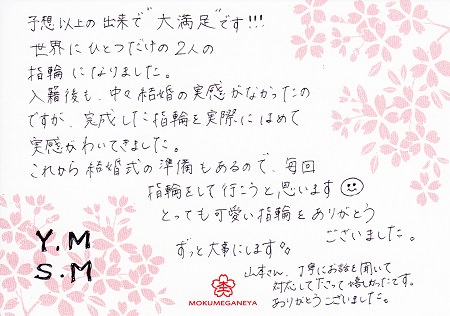 予想以上の出来で"大満足"です!!!
世界にひとつだけの2人の
指輪になりました。
入籍後も、中々結婚の実感がなかったの
ですが、完成した指輪を実際にはめて
実感がわいてきました。
これから結婚式の準備もあるので、毎回
指輪をして行こうと思います
とっても可愛い指輪をありがとう
ございました。
ずっと大事にします。
Y.M
S.M
山本さん、丁寧にお話を聞いて
対応して下さって嬉しかったです。
ありがとうございました。
MOKUMEGANEYA